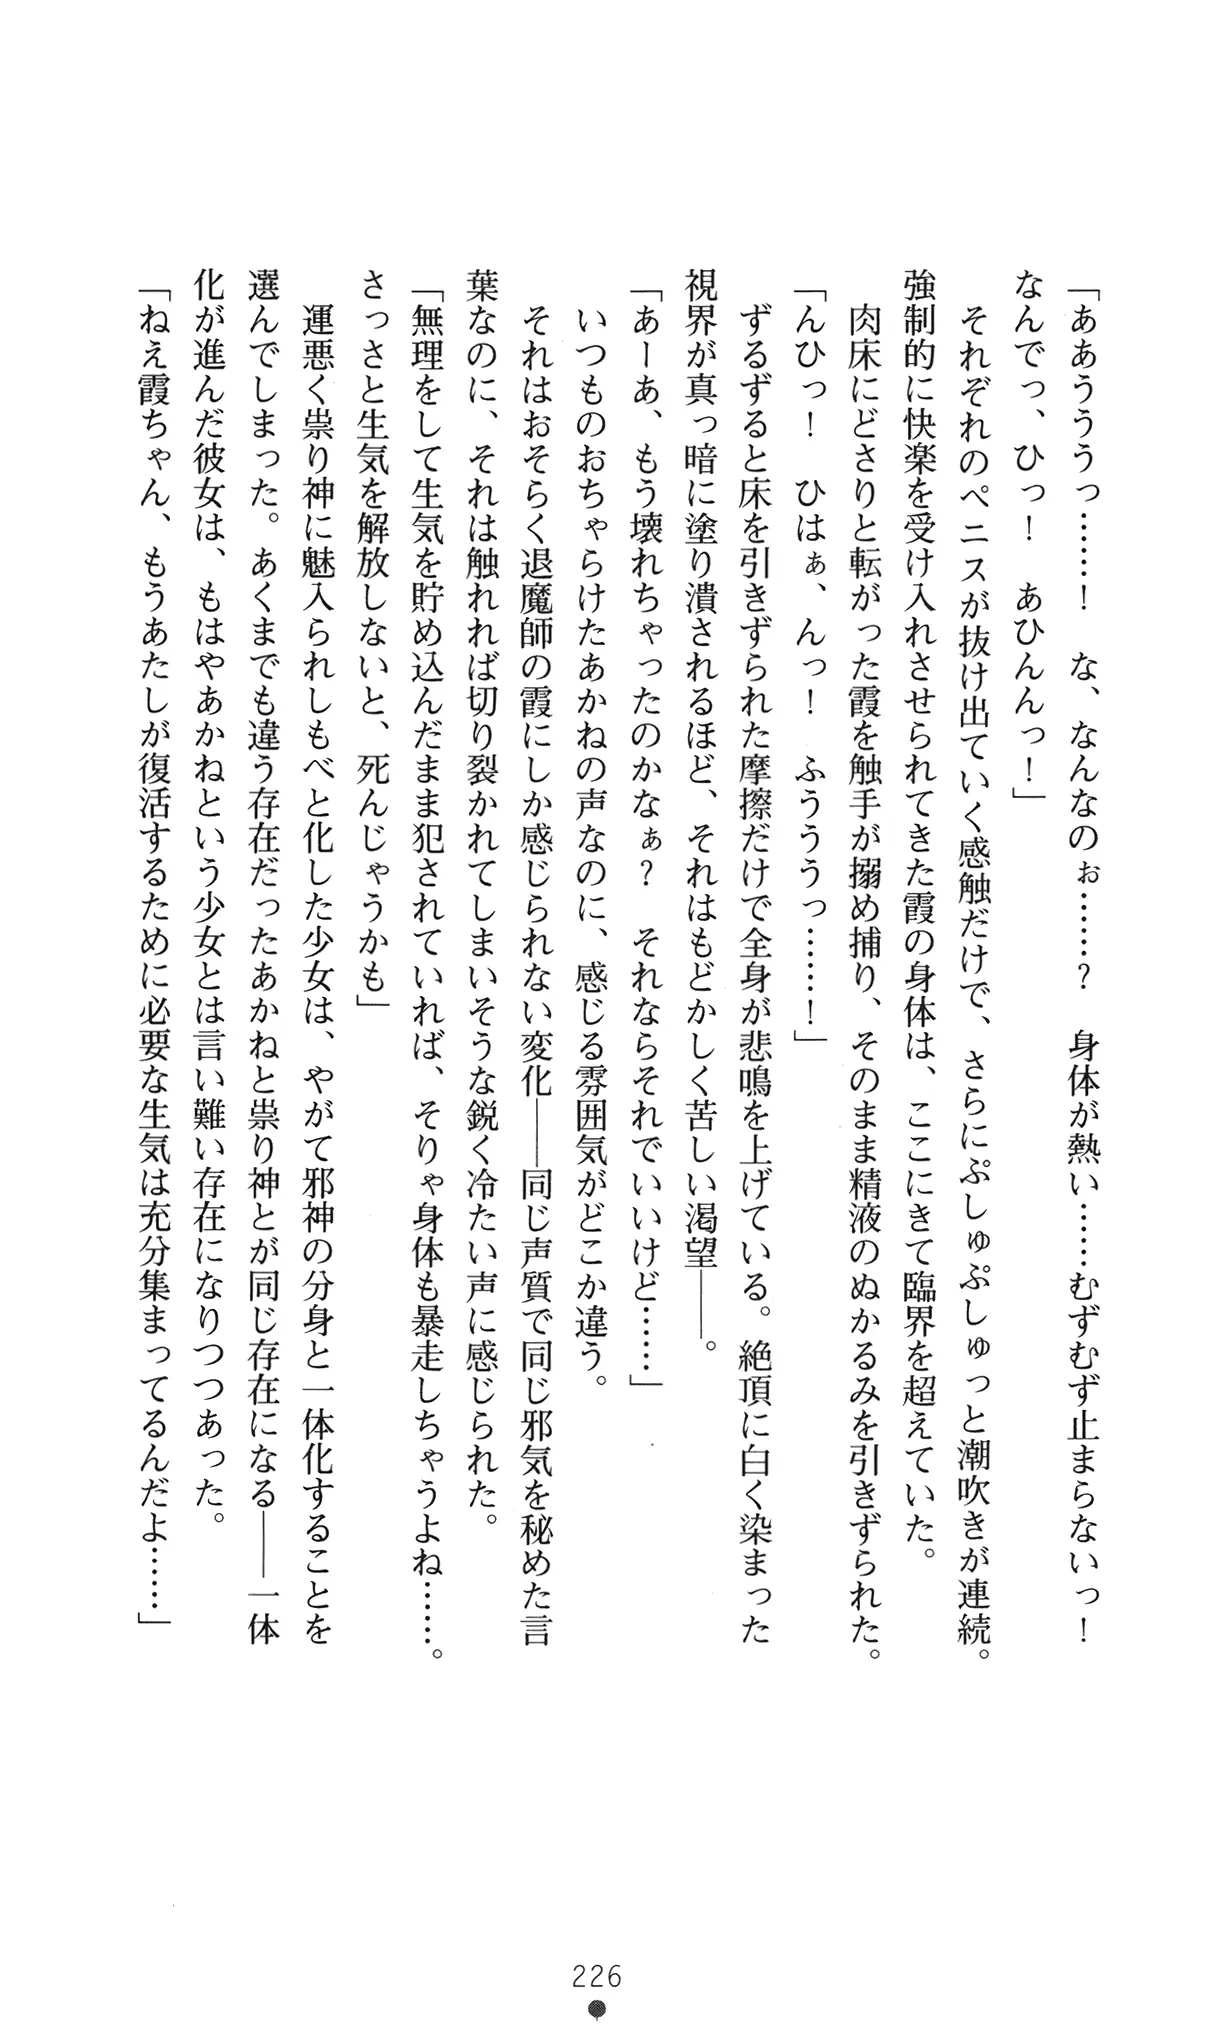 「ああううっ……！　な、なんなのぉ……？　身体が熱い……むずむず止まらないっ！
なんでっ、ひっ！　あひんんっ！」
それぞれのペニスが抜け出ていく感触だけで、さらにぷしゅぷしゅっと潮吹きが連続。
強制的に快楽を受け入れさせられてきた霞の身体は、ここにきて臨界を超えていた。
肉床にどさりと転がった霞を触手が搦め捕り、そのまま精液のぬかるみを引きずられた。
「んひっ！　ひはぁ、んっ！　ふううっ……！」
ずるずると床を引きずられた摩擦だけで全身が悲鳴を上げている。絶頂に白く染まった
視界が真っ暗に塗り潰されるほど、それはもどかしく苦しい渇望――。
「あーあ、もう壊れちゃったのかなぁ？　それならそれでいいけど……」
いつものおちゃらけたあかねの声なのに、感じる雰囲気がどこか違う。
それはおそらく退魔師の霞にしか感じられない変化――同じ声質で同じ邪気を秘めた言
葉なのに、それは触れれば切り裂かれてしまいそうな鋭く冷たい声に感じられた。
「無理をして生気を貯め込んだまま犯されていれば、そりゃ身体も暴走しちゃうよね……。
さっさと生気を解放しないと、死んじゃうかも」
運悪く祟り神に魅入られしもべと化した少女は、やがて邪神の分身と一体化することを
選んでしまった。あくまでも違う存在だったあかねと祟り神とが同じ存在になる――一体
化が進んだ彼女は、もはやあかねという少女とは言い難い存在になりつつあった。
「ねえ霞ちゃん、もうあたしが復活するために必要な生気は充分集まってるんだよ……」
226